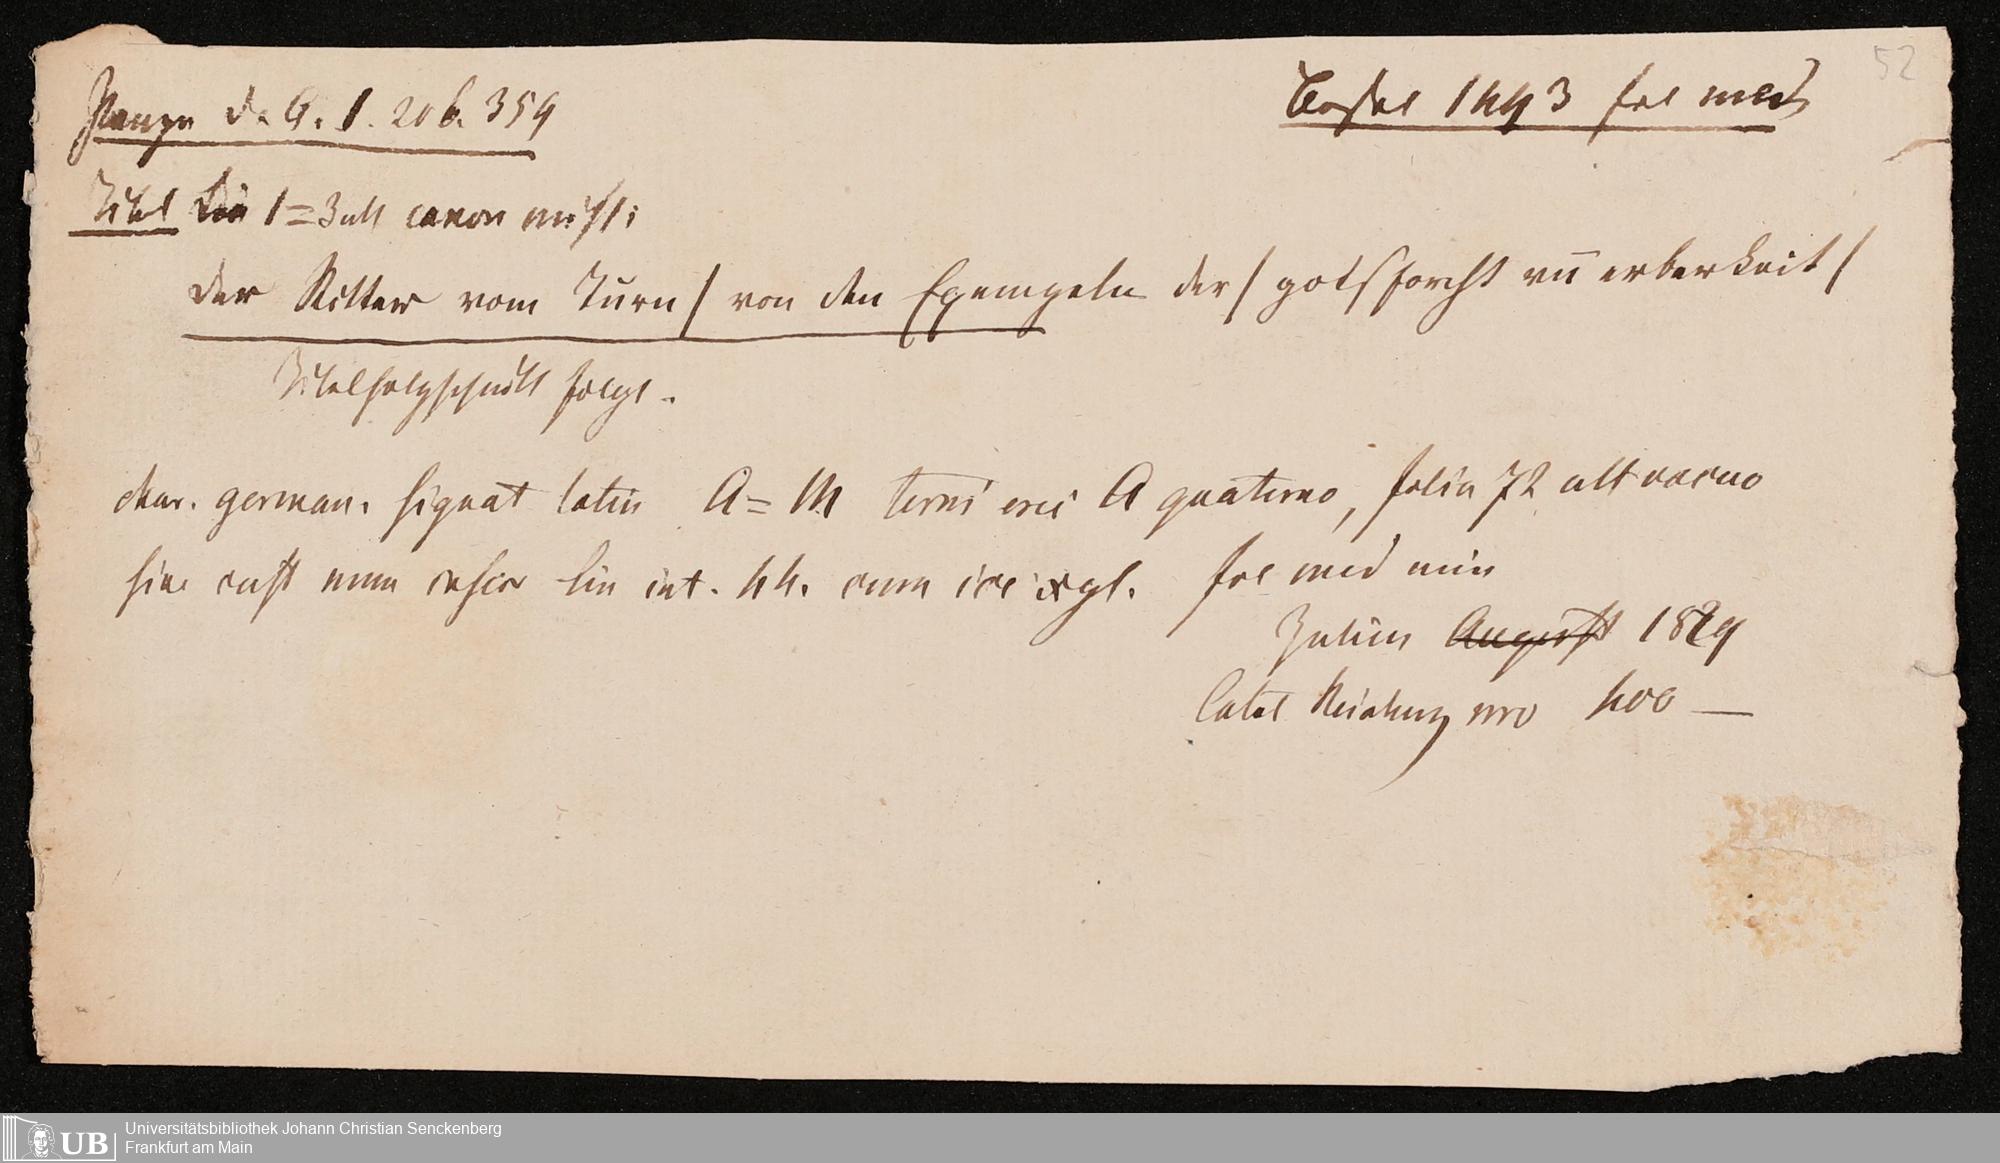 52
Panzer d. A. 1. 206. 359
Basel 1493 fol med
Titel 1 = Zoll canon missi:
Der Ritter vom Turn / von den Exempeln der / gotsforcht vn̄ erberkeit /
Titelholzschnitt folgt.
char. german. signat latin A = M terni exci A quaterno, folia 72 ult vacuo
sine cust num lin int. 44. cum ico xyl. fol med min
Julius August 1829
Catal nro 400 —
UB Universitätsbibliothek Johann Christian Senckenberg
Frankfurt am Main